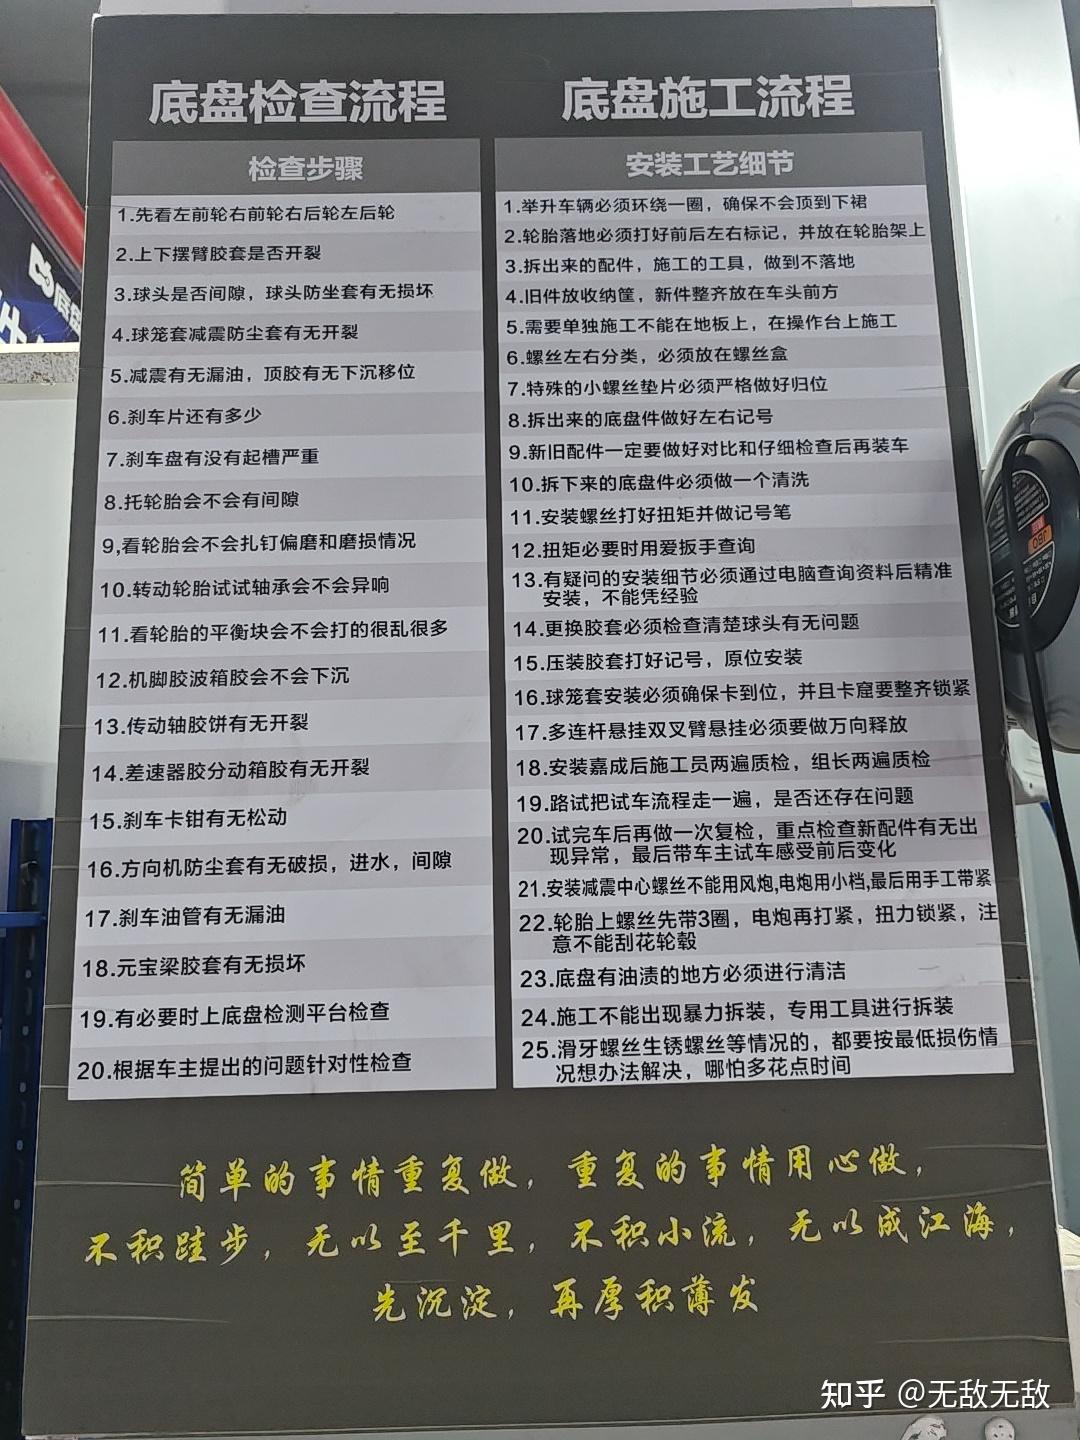 底盘检查流程
检查步骤
1.先看左前轮右前轮右后轮左后轮
2.上下摆臂胶套是否开裂
3.球头是否间隙，球头防坐套有无损坏
4.球笼套减震防尘套有无开裂
5.减震有无漏油，顶胶有无下沉移位
6.刹车片还有多少
7.刹车盘有没有起槽严重
8.托轮胎会不会有间隙
9,看轮胎会不会扎钉偏磨和磨损情况
10.转动轮胎试试轴承会不会异响
11.看轮胎的平衡块会不会打的很乱很多
12.机脚胶波箱胶会不会下沉
13.传动轴胶饼有无开裂
14.差速器胶分动箱胶有无开裂
15.刹车卡钳有无松动
16.方向机防尘套有无破损，进水，间隙
17.刹车油管有无漏油
18.元宝梁胶套有无损坏
19.有必要时上底盘检测平台检查
20.根据车主提出的问题针对性检查
底盘施工流程
安装工艺细节
1.举升车辆必须环绕一圈，确保不会顶到下裙
2.轮胎落地必须打好前后左右标记，并放在轮胎架上
3.拆出来的配件，施工的工具，做到不落地
4.旧件放收纳筐，新件整齐放在车头前方
5.需要单独施工不能在地板上，在操作台上施工
6.螺丝左右分类，必须放在螺丝盒
7.特殊的小螺丝垫片必须严格做好归位
8.拆出来的底盘件做好左右记号
9.新旧配件一定要做好对比和仔细检查后再装车
10.拆下来的底盘件必须做一个清洗
11.安装螺丝打好扭矩并做记号笔
12.扭矩必要时用爱扳手查询
13.有疑问的安装细节必须通过电脑查询资料后精准
安装，不能凭经验
14.更换胶套必须检查清楚球头有无问题
15.压装胶套打好记号，原位安装
16.球笼套安装必须确保卡到位，并且卡窟要整齐锁紧
17.多连杆悬挂双叉臂悬挂必须要做万向释放
18.安装嘉成后施工员两遍质检，组长两遍质检
19.路试把试车流程走一遍，是否还存在问题
20.试完车后再做一次复检，重点检查新配件有无出
现异常，最后带车主试车感受前后变化
21.安装减震中心螺丝不能用风炮,电炮用小档,最后用手工带紧
22.轮胎上螺丝先带3圈，电炮再打紧，扭力锁紧，注
意不能刮花轮毂
23.底盘有油渍的地方必须进行清洁
24.施工不能出现暴力拆装，专用工具进行拆装
25.滑牙螺丝生锈螺丝等情况的，都要按最低损伤情
况想办法解决，哪怕多花点时间
简单的事情重复做，重复的事情用心做，
不积跬步，无以至千里，不积小流，无以成江海，
先沉淀，再厚积薄发
知乎 @无敌无敌